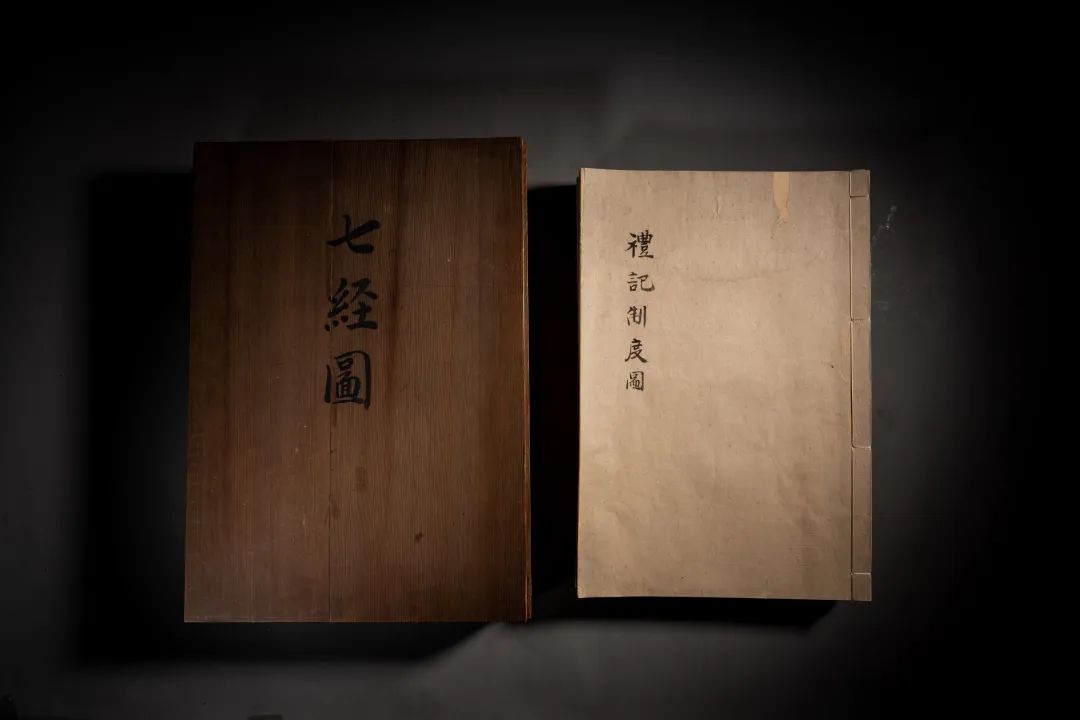 七経圖
禮記制度圖